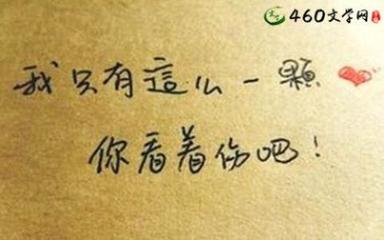 460文学网
我只有這么一顆❤
你看着伤吧!